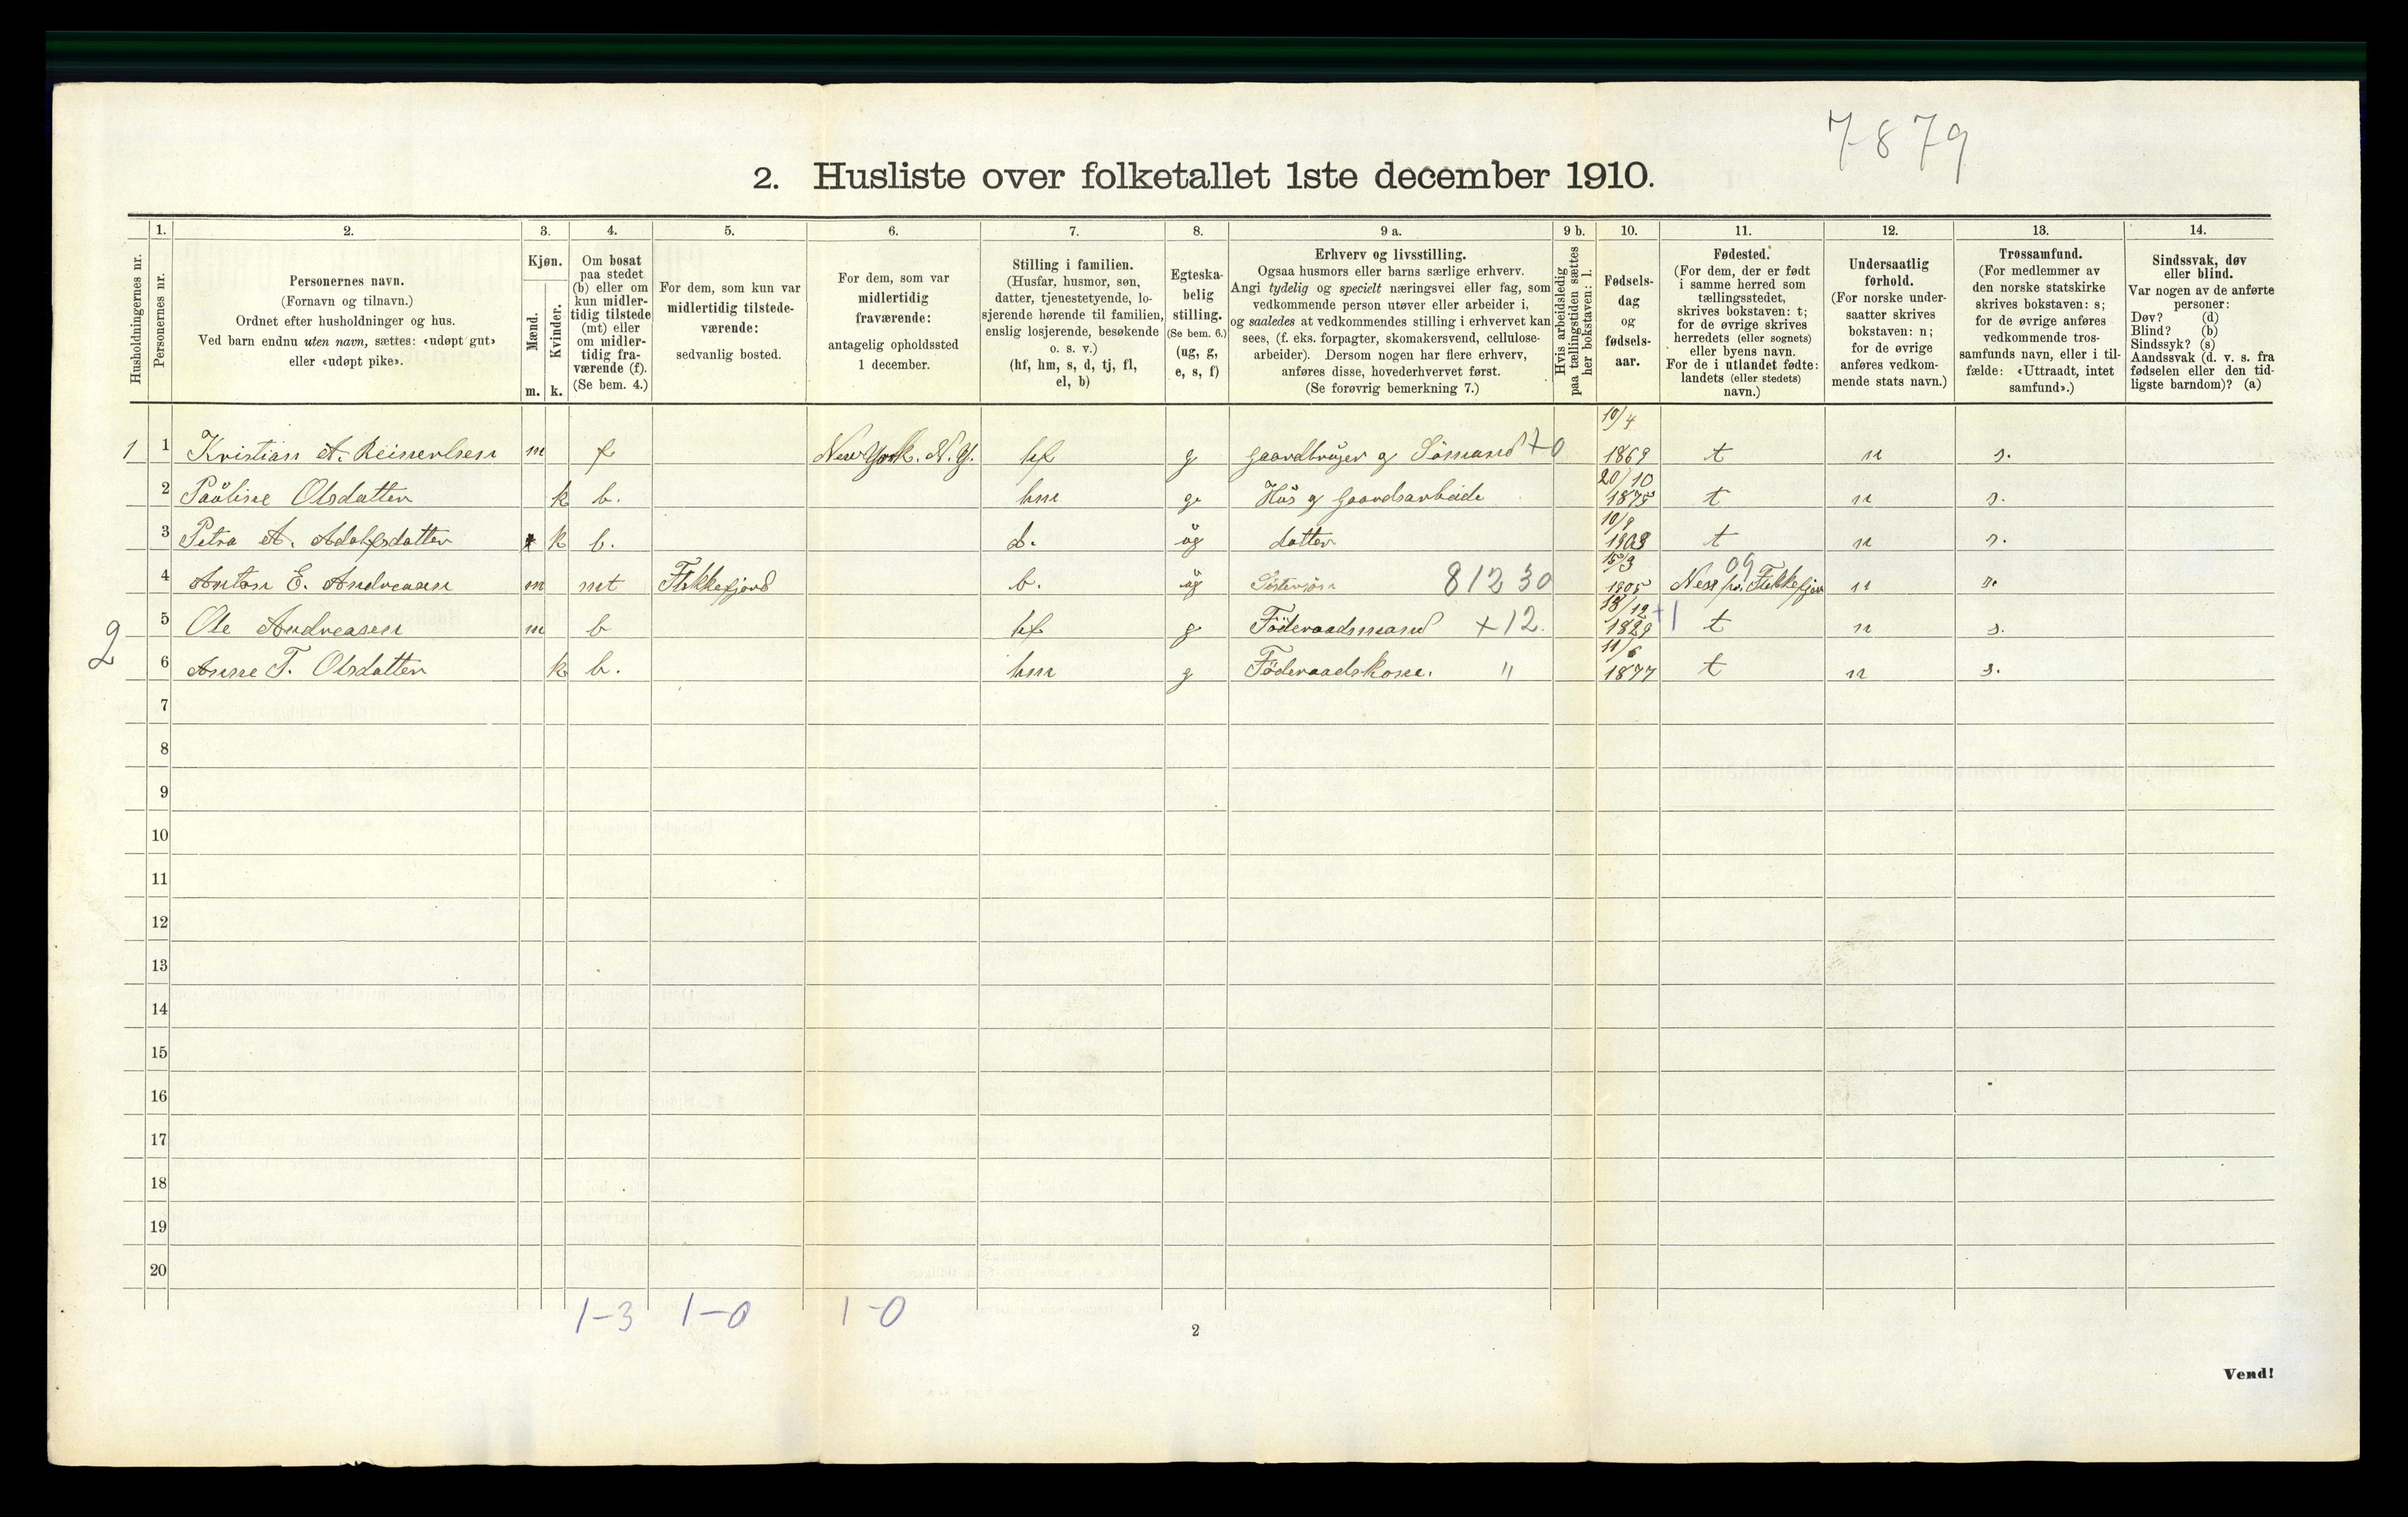 7879
2. Husliste over folketallet 1ste december 1910.
Husholdningernes nr.
1.
Personernes nr.
2.
Personernes navn.
(Fornavn og tilnavn.)
Ordnet efter husholdninger og hus.
Ved barn endnu uten navn, sættes: «udøpt gut»
eller «udøpt pike».
3.
Kjøn.
Mænd.
Kvinder.
m. k.
4.
Om bosat
paa stedet
(b) eller om
kun midler-
tidig tilstede
(mt) eller
om midler-
tidig fra-
værende (f).
(Se bem. 4.)
5.
For dem, som kun var
midlertidig tilstede-
værende:
sedvanlig bosted.
6.
For dem, som var
midlertidig
fraværende:
antagelig opholdssted
1 december.
7.
Stilling i familien.
(Husfar, husmor, søn,
datter, tjenestetyende, lo-
sjerende hørende til familien,
enslig losjerende, besøkende
o. s. v.)
(hf, hm, s, d, tj, fl,
el, b)
8.
Egteska-
belig
stilling.
(Se bem. 6.)
(ug, g,
e, s, f)
9 a.
Erhverv og livsstilling.
Ogsaa husmors eller barns særlige erhverv.
Angi tydelig og specielt næringsvei eller fag, som
vedkommende person utøver eller arbeider i,
og saaledes at vedkommendes stilling i erhvervet kan
sees, (f. eks. forpagter, skomakersvend, cellulose-
arbeider). Dersom nogen har flere erhverv,
anføres disse, hovederhvervet først.
(Se forøvrig bemerkning 7.)
9 b.
Hvis arbeidsledig
paa tællingstiden sættes
her bokstaven: l.
10.
Fødsels-
dag
og
fødsels-
aar.
11.
Fødested.
(For dem, der er født
i samme herred som
tællingsstedet,
skrives bokstaven: t;
for de øvrige skrives
herredets (eller sognets)
eller byens navn.
For de i utlandet fødte:
landets (eller stedets)
navn.)
12.
Undersaatlig
forhold.
(For norske under-
saatter skrives
bokstaven: n;
for de øvrige
anføres vedkom-
mende stats navn.)
13.
Trossamfund.
(For medlemmer av
den norske statskirke
skrives bokstaven: s;
for de øvrige anføres
vedkommende tros-
samfunds navn, eller i til-
fælde: «Uttraadt, intet
samfund».)
14.
Sindssvak, døv
eller blind.
Var nogen av de anførte
personer:
Døv? (d)
Blind? (b)
Sindssyk? (s)
Aandssvak (d. v. s. fra
fødselen eller den tid-
ligste barndom)? (a)
1 1 Kristian A. Reinertsen m f New York. N.Y. hf g gaardbruger og Sömand 10/4 1869 t n s.
2 Paŭline Olsdatter k b. hm g. Hŭs og Gaardsarbeide 20/10 1875 t n s.
3 Petra A. Adolfsdatter k b. d. ŭg datter 10/9 t n s.
4 Anton E. Andreasen m mt Flekkefjord b. ŭg Söstersön 81230 15/3 1905 09 Ness pr. Flekkefjord n s.
2 5 Ole Andreasen m b hf g Föderaadsmand +12. 18/12 1829 +1 t n s.
6 Anne T. Olsdatter k b. hm g Föderaadskone. " 11/6 t n s.
7
8
9
10
11
12
13
14
15
16
17
18
19
20
1-3 1-0 1-0
2
Vend!